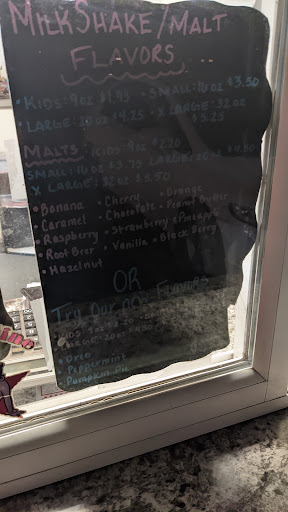 MilkShake/Malt
FLAVORS ...
• Kids: 9oz $1.95 • Small: 16oz $3.50
• Large: 20oz $4.25 • X Large: 32oz
$5.25
Malts: Kids: 9oz $2.20
Small: 16oz $3.75 Large: 20oz $4.50
X Large: 32oz $5.50
• Banana • Cherry • Orange
• Caramel • Chocolate • Peanut Butter
• Raspberry • Strawberry • Pineapple
• Root Beer • Vanilla • Black Berry
• Hazelnut
OR
Try Our Flavors
• Oreo
• Peppermint
• Pumpkin Pie